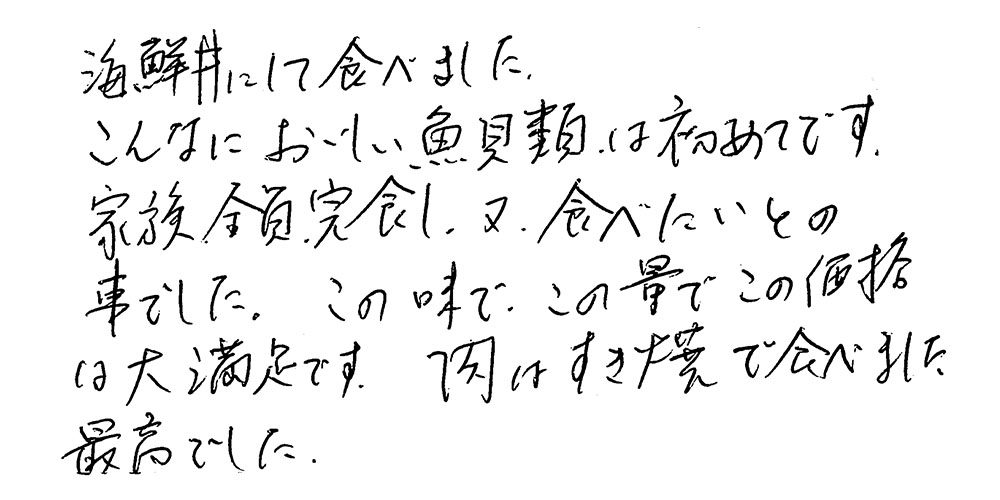 海鮮丼にして食べました.
こんなにおいしい魚貝類は初めてです.
家族全員完食し、又、食べたいとの
事でした。 この味で、この量でこの価格
は大満足です. 肉はすき焼で食べました
最高でした.